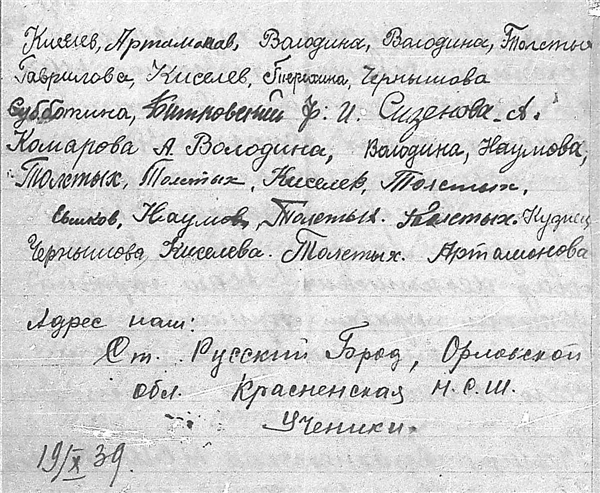 Киселев, Артамонов, Володина, Володина, Толстых
Гаврилова, Киселев, Чернышова
Субботина, Битровский Ф. И. Сизенова А.
Комарова А Володина, Володина, Наумова,
Толстых, Толстых, Киселев, Толстых,
Наумов, Толстых. Толстых. Кудиец
Чернышова Киселева. Толстых. Артамонова
Адрес наш:
Ст. Русский Брод, Орловской
обл. Красненская Н.С.Ш.
Ученики.
19/X 39.